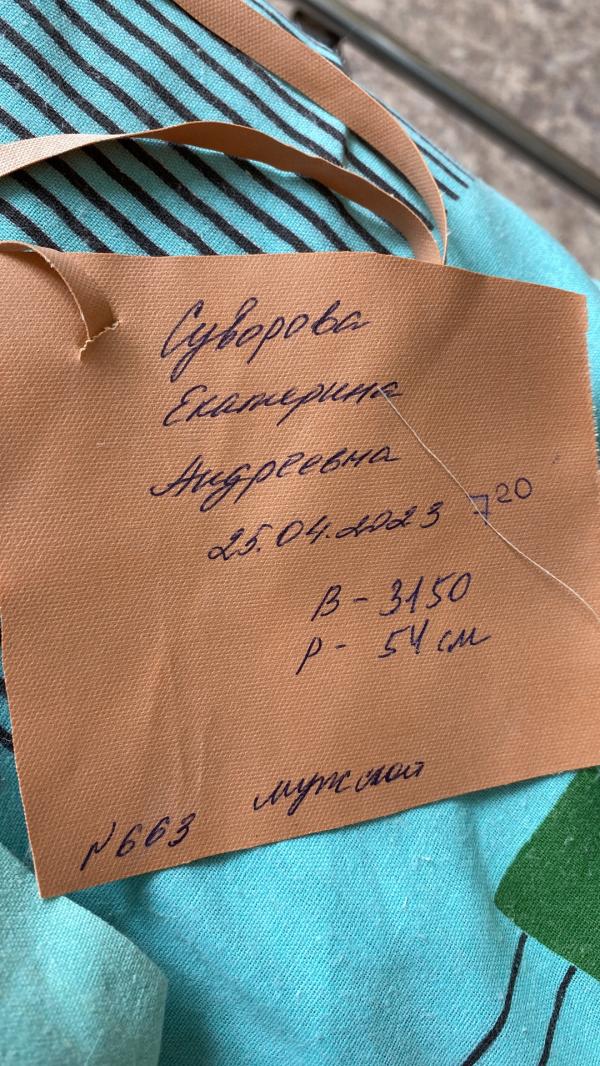 Суворова
Екатерина
Андреевна
25.04.2023 7 20
В - 3150
Р - 54 см
мужской
N 663